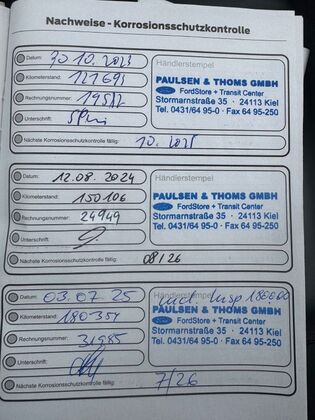 Nachweise - Korrosionsschutzkontrolle
Datum: 30.10.2023
Kilometerstand: 121693
Rechnungsnummer: 19582
Unterschrift:
Nächste Korrosionsschutzkontrolle fällig: 10.2025
Händlerstempel
PAULSEN & THOMS GMBH
Ford FordStore + Transit Center
Stormarnstraße 35 · 24113 Kiel
Tel. 0431/64 95-0 · Fax 64 95-250
Datum: 12.08.2024
Kilometerstand: 150106
Rechnungsnummer: 24949
Unterschrift
Nächste Korrosionsschutzkontrolle fällig: 08/26
Händlerstempel
PAULSEN & THOMS GMBH
Ford FordStore + Transit Center
Stormarnstraße 35 · 24113 Kiel
Tel. 0431/64 95-0 · Fax 64 95-250
Datum: 03.07.25
Kilometerstand: 180354
Rechnungsnummer: 31585
Unterschrift:
Nächste Korrosionsschutzkontrolle fällig: 7/26
Händlerstempel
incl. Insp 180000
PAULSEN & THOMS GMBH
Ford FordStore + Transit Center
Stormarnstraße 35 · 24113 Kiel
Tel. 0431/64 95-0 · Fax 64 95-250